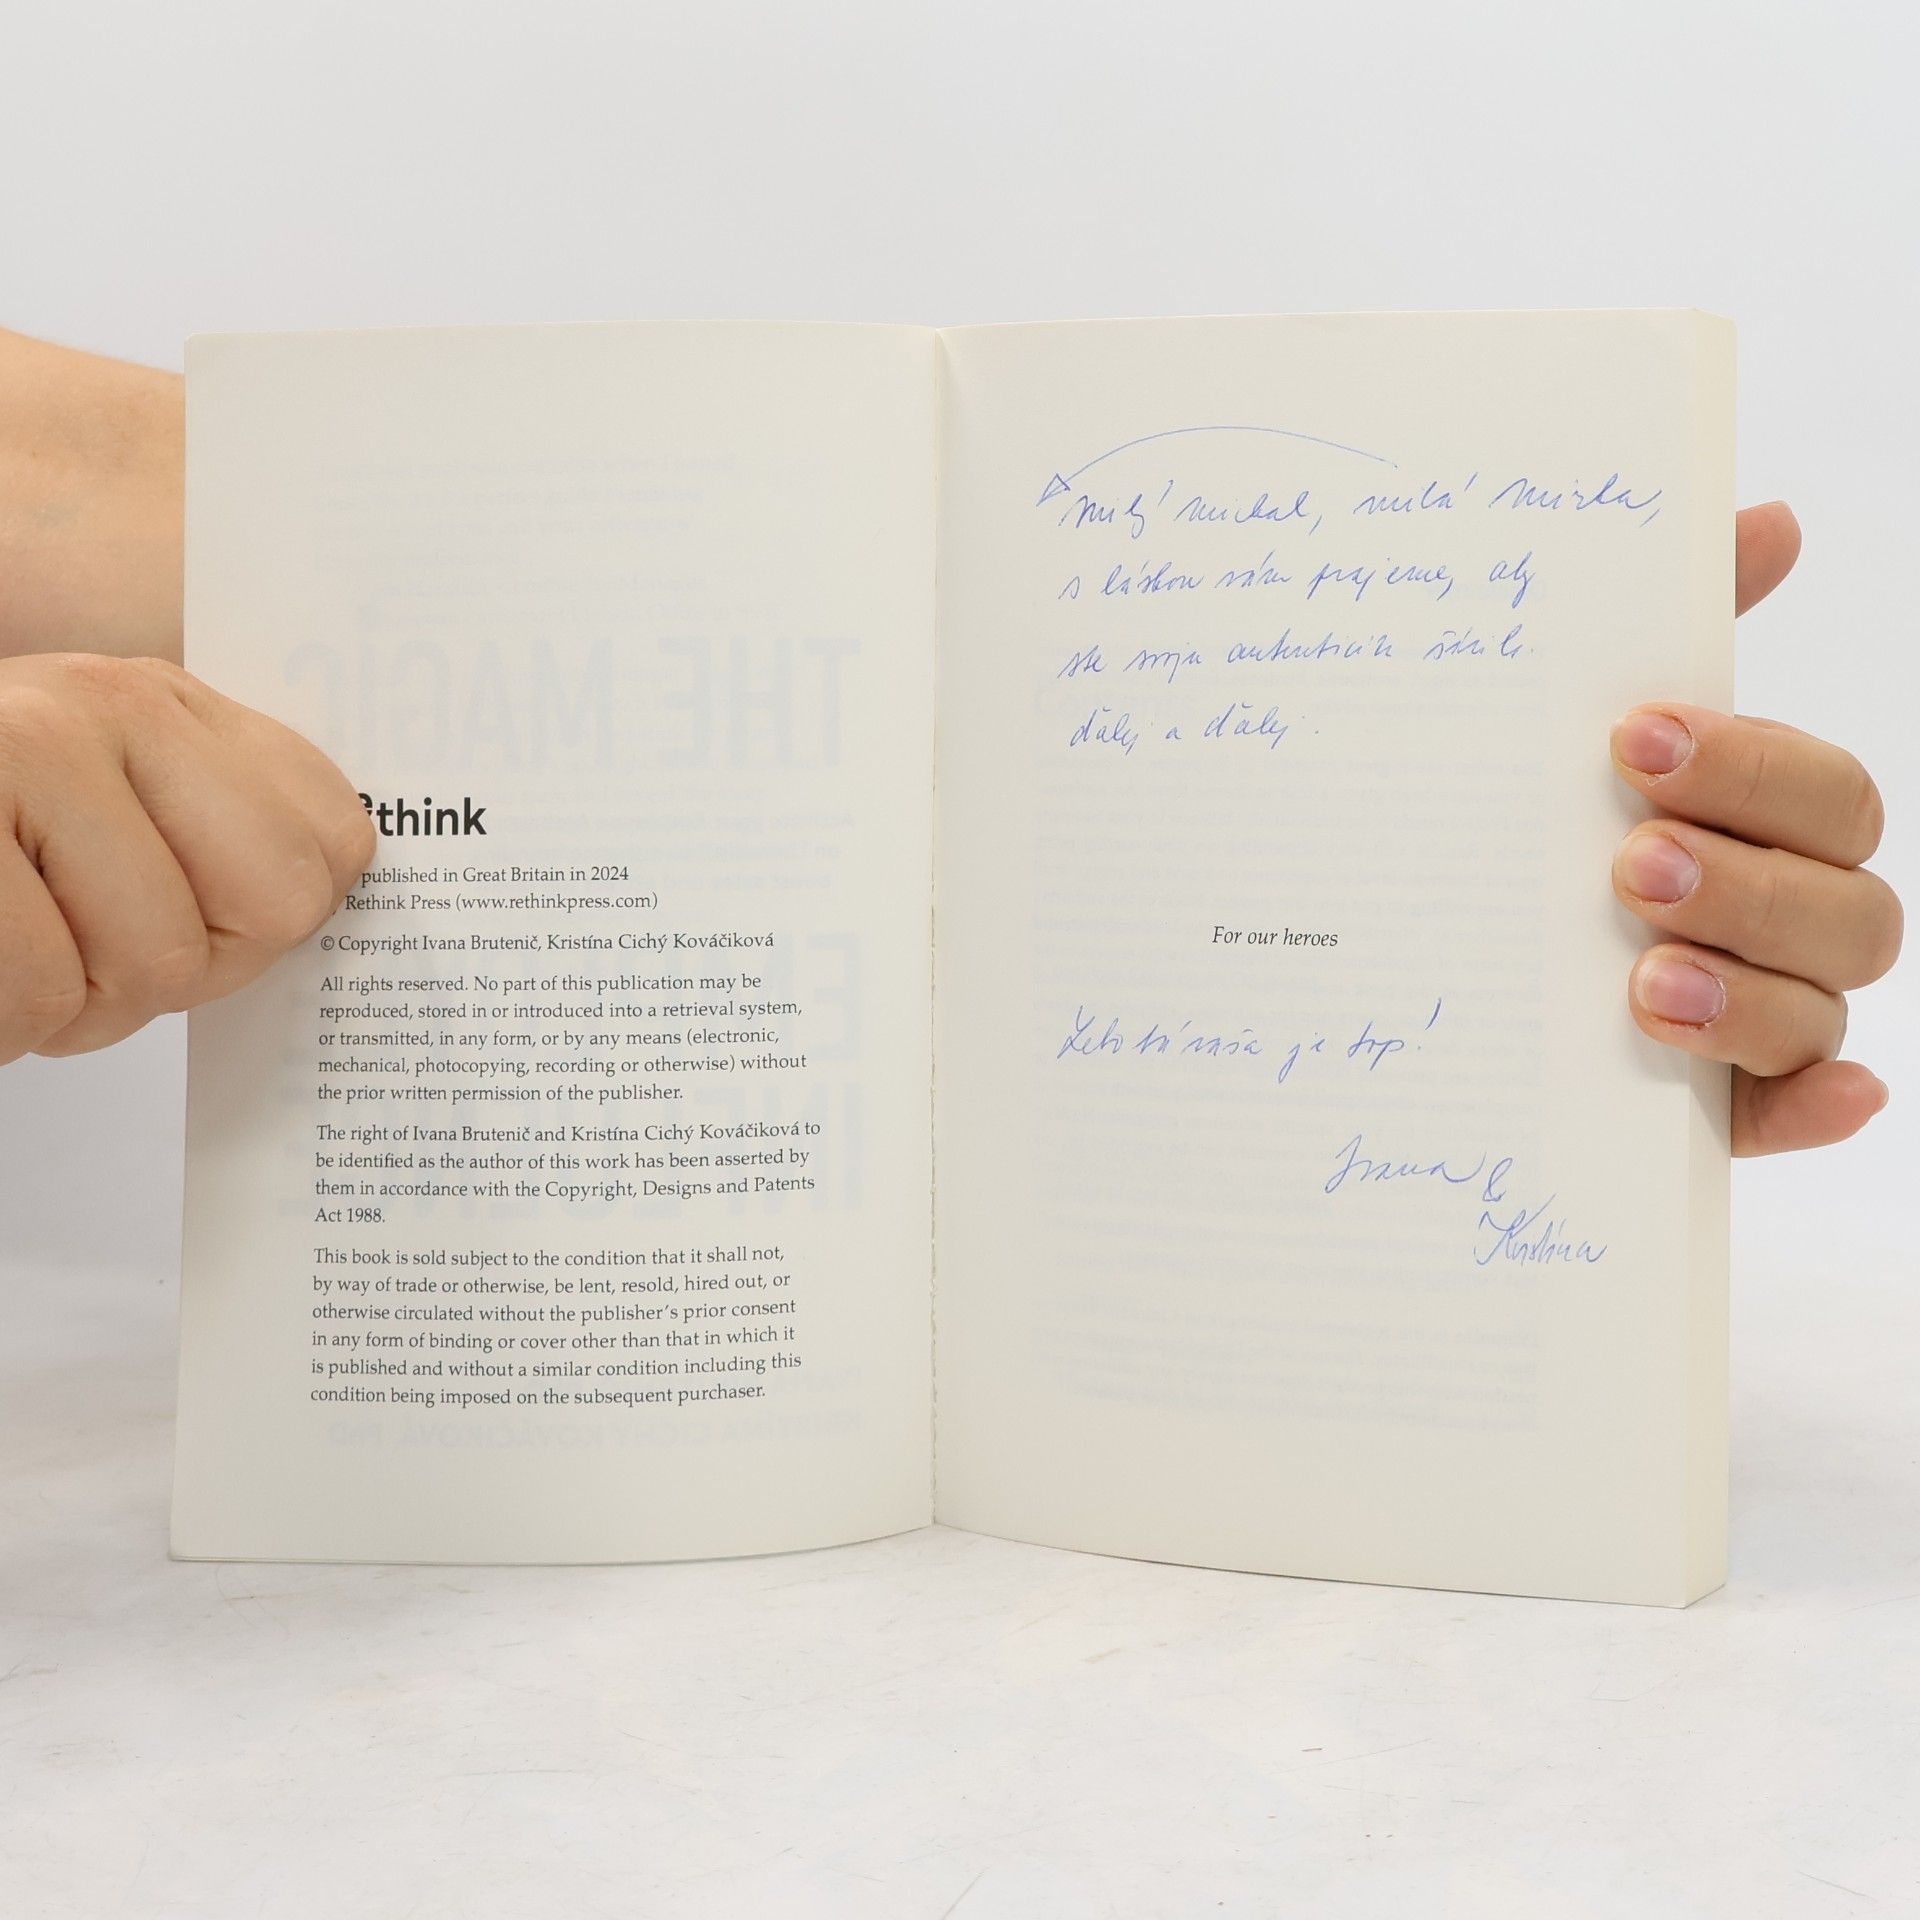 think
published in Great Britain in 2024
Rethink Press (www.rethinkpress.com)
© Copyright Ivana Brutenič, Kristína Cichý Kováčiková
All rights reserved. No part of this publication may be
reproduced, stored in or introduced into a retrieval system,
or transmitted, in any form, or by any means (electronic,
mechanical, photocopying, recording or otherwise) without
the prior written permission of the publisher.
The right of Ivana Brutenič and Kristína Cichý Kováčiková to
be identified as the author of this work has been asserted by
them in accordance with the Copyright, Designs and Patents
Act 1988.
This book is sold subject to the condition that it shall not,
by way of trade or otherwise, be lent, resold, hired out, or
otherwise circulated without the publisher's prior consent
in any form of binding or cover other than that in which it
is published and without a similar condition including this
condition being imposed on the subsequent purchaser.
Milý Michal, milá Mirka,
s láskou vám prajeme, aby
ste svoju šírili
ďalej a ďalej.
For our heroes
Lebo tá vaša je top!
Ivana &
Kristína